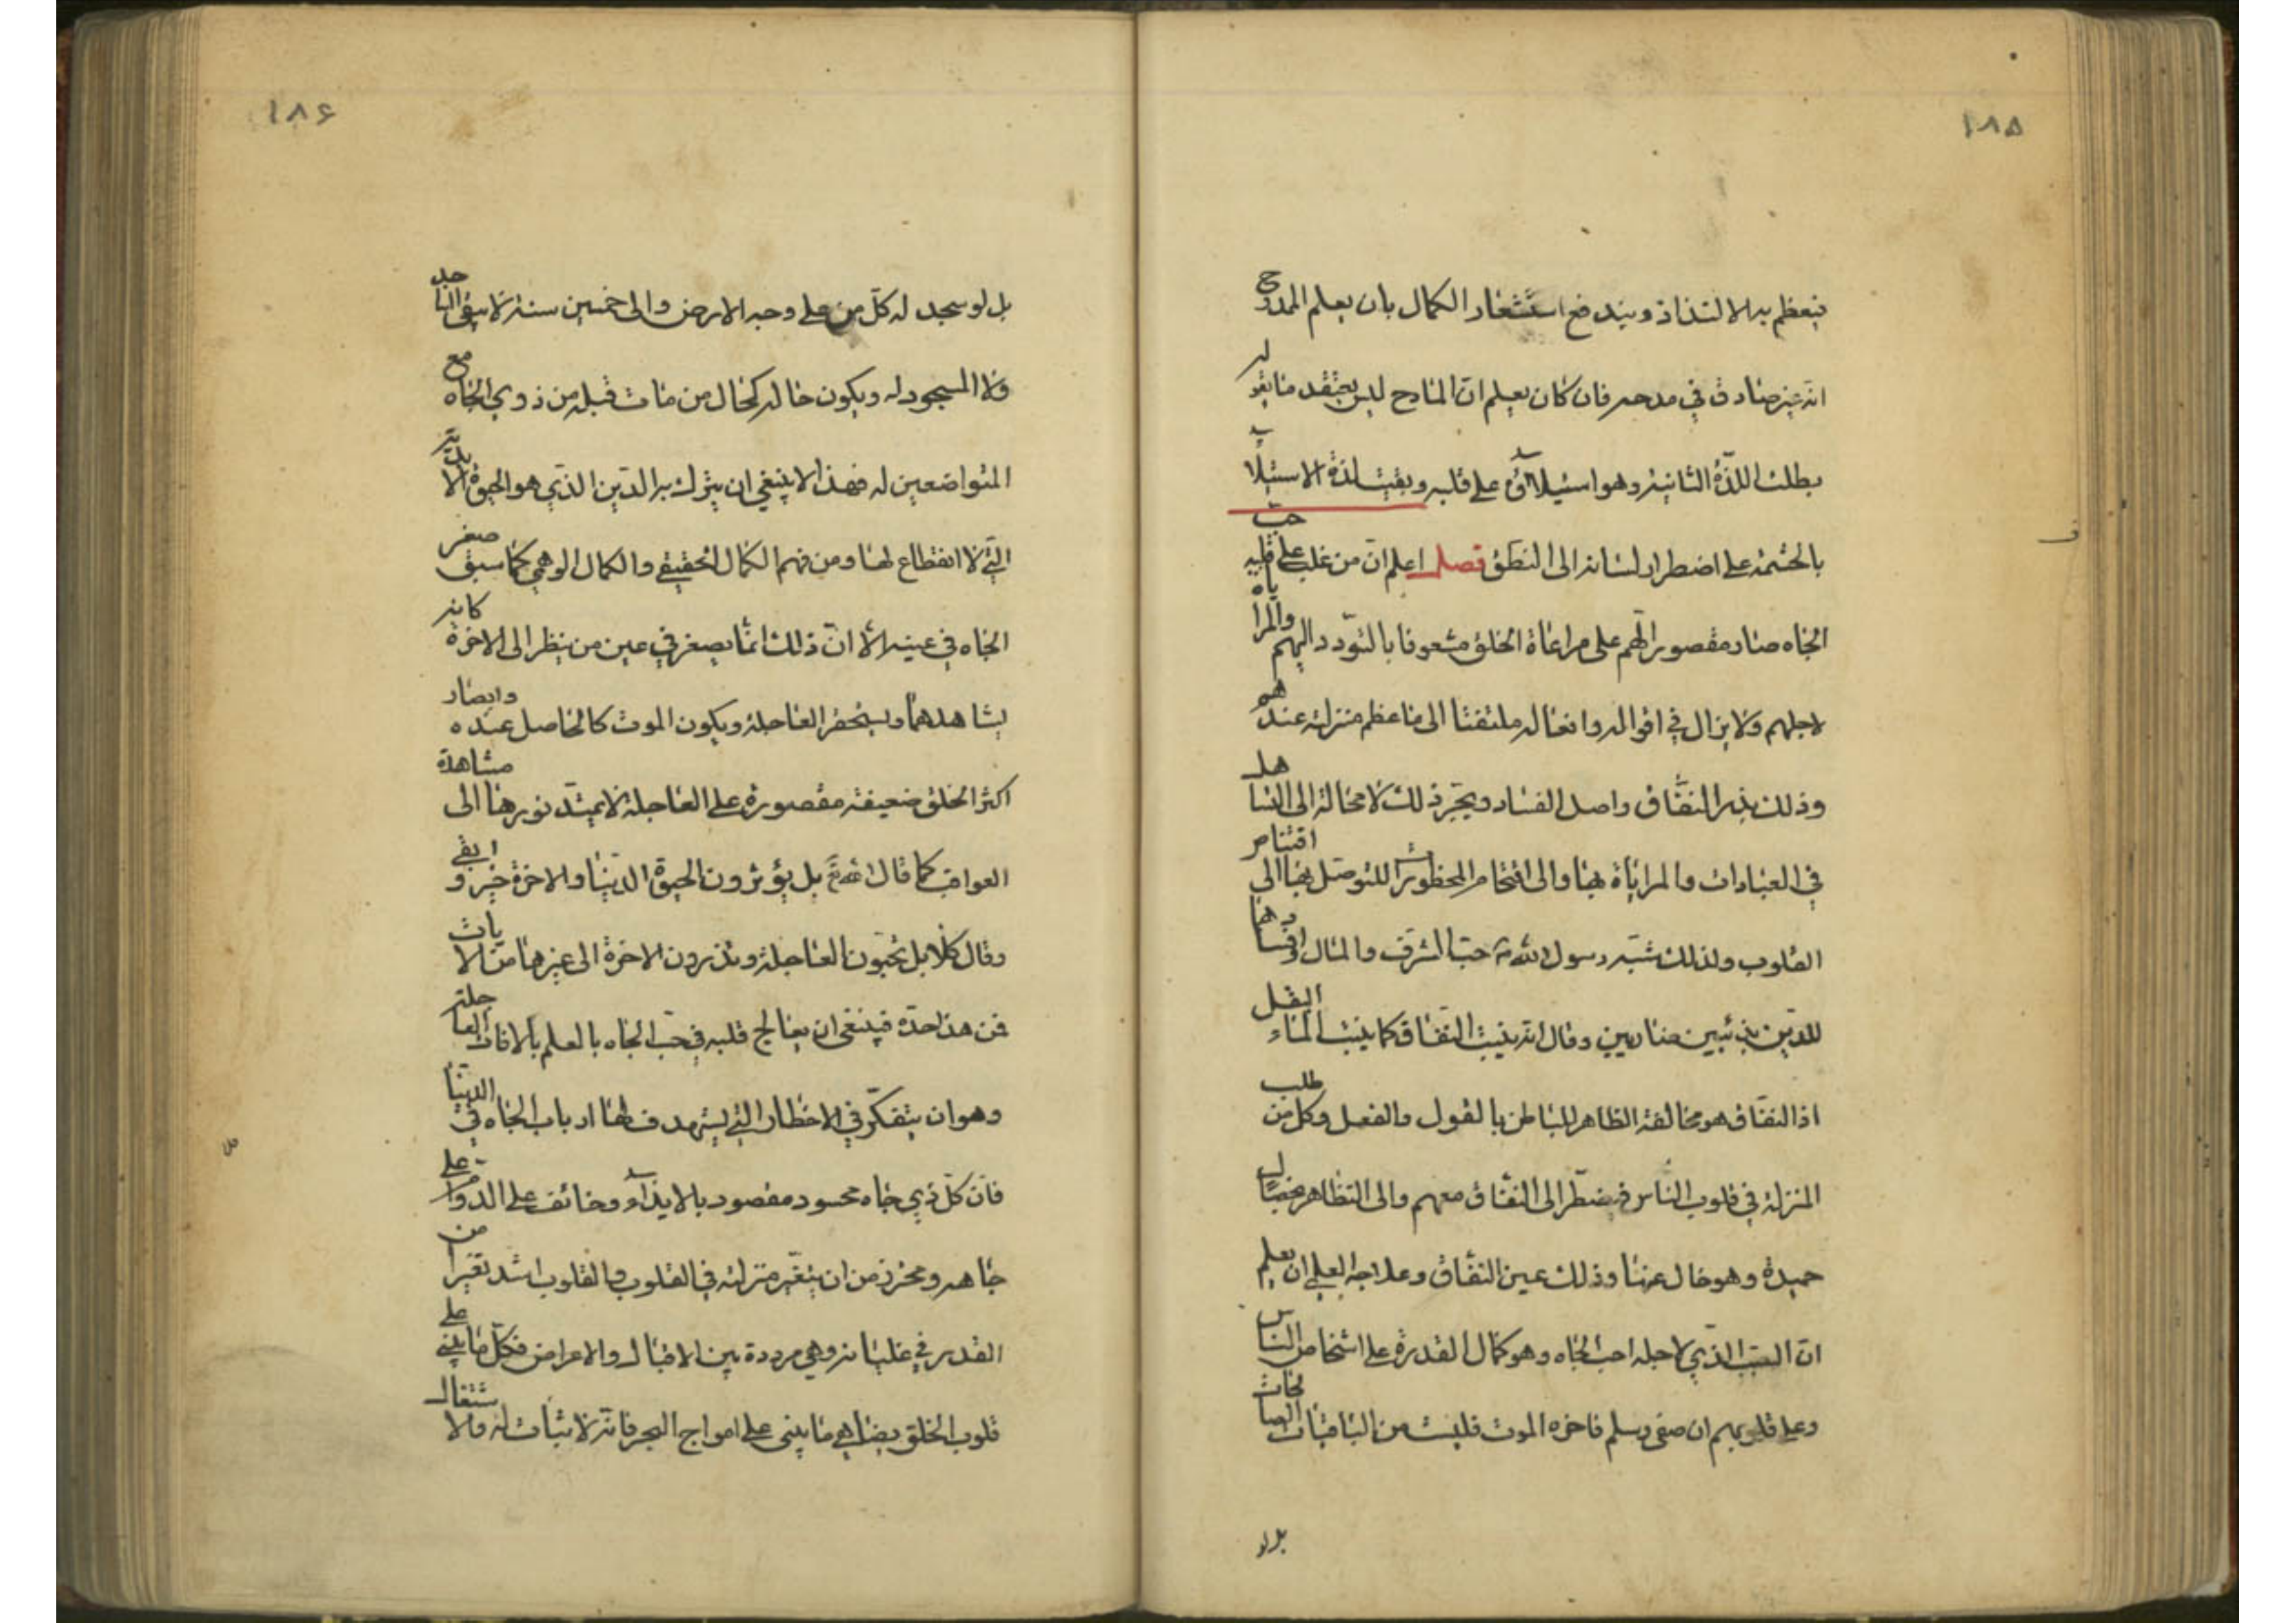 ١٨٥
فيعظم به الالتذاذ ويندفع استشعار الكمال بان يعلم الممدوح
انه غير صادق في مدحه فان كان يعلم ان المادح ليس يعتقد ما يقوله
بطلت اللذة الثانية وهو استيلاؤه على قلبه وبقيت لذة الاستيلاء
بالحشمة على اضطرار لسانه الى النطق فصل اعلم ان من غلب على قلبه حب
الجاه صار مقصور الهم على مراعاة الخلق مشعوفا بالتودد اليهم والمراياه
لاجلهم ولا يزال في اقواله وافعاله ملتفتا الى ما عظم منزلته عندهم
وذلك بذر النفاق واصل الفساد ويجر ذلك لا محالة الى التساهل
في العبادات والمراياة بها والى اقتحام المحظورات للتوصل بها الى اقتناص
القلوب ولذلك شبه رسول الله ص حب الشرف والمال وافسادهما
للدين بذئبين ضاريين وقال انه ينبت النفاق كما ينبت الماء البقل
اذ النفاق هو مخالفة الظاهر للباطن بالقول والفعل وكل من طلب
المنزلة في قلوب الناس فيضطر الى النفاق معهم والى التظاهر بخصال
حميدة وهو خال عنها وذلك عين النفاق وعلاجه العلمي ان يعلم
ان السبب الذي لاجله احب الجاه وهو كمال القدرة على اشخاص الناس
وعلى قلوبهم ان صفى وسلم فاخره الموت فليست من الباقيات الصالحات
بل لو
١٨۶
بل لو سجد له كل من على وجه الارض والى خمسين سنة لا يبقى الساجد
ولا المسجود له ويكون حاله كحال من مات قبله من ذوي الجاه مع
المتواضعين له فهذا لا ينبغي ان يترك به الدين الذي هو الحيوة الابدية
التي لا انقطاع لها ومن فهم الكمال الحقيقي والكمال الوهمي كما سبق صغر
الجاه في عينه الا ان ذلك انما يصغر في عين من ينظر الى الاخرة كانه
يشاهدها ويستحقر العاجلة ويكون الموت كالحاصل عنده وابصار
اكثر الخلق ضعيفة مقصورة على العاجلة لا يمتد نورها الى مشاهدة
العواقب كما قال الله تع بل يؤثرون الحيوة الدنيا والاخرة خير وابقى
وقال كلا بل تحبون العاجلة وتذرون الاخرة الى غيرها من الايات
فمن هذا حده فينبغي ان يعالج قلبه في حب الجاه بالعلم بالافات العاجلة
وهو ان يتفكر في الاخطار التي يستهدف لها ارباب الجاه في الدنيا
فان كل ذي جاه محسود مقصود بالايذاء وخائف على الدوام على
جاهه ومحترز من ان يتغير منزلته في القلوب والقلوب اشد تغيرا من
القدر في غليانه وهي مرددة بين الاقبال والاعراض فكل ما يبنى على
قلوب الخلق يضاهي ما يبنى على امواج البحر فانه لا ثبات له والاشتغال